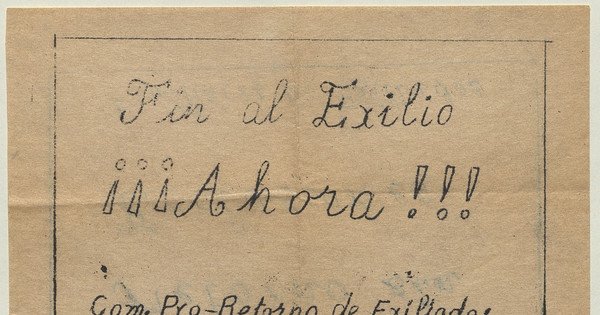 Fin al Exilio
¡¡¡Ahora!!!
Com. Pro-Retorno de Exiliados